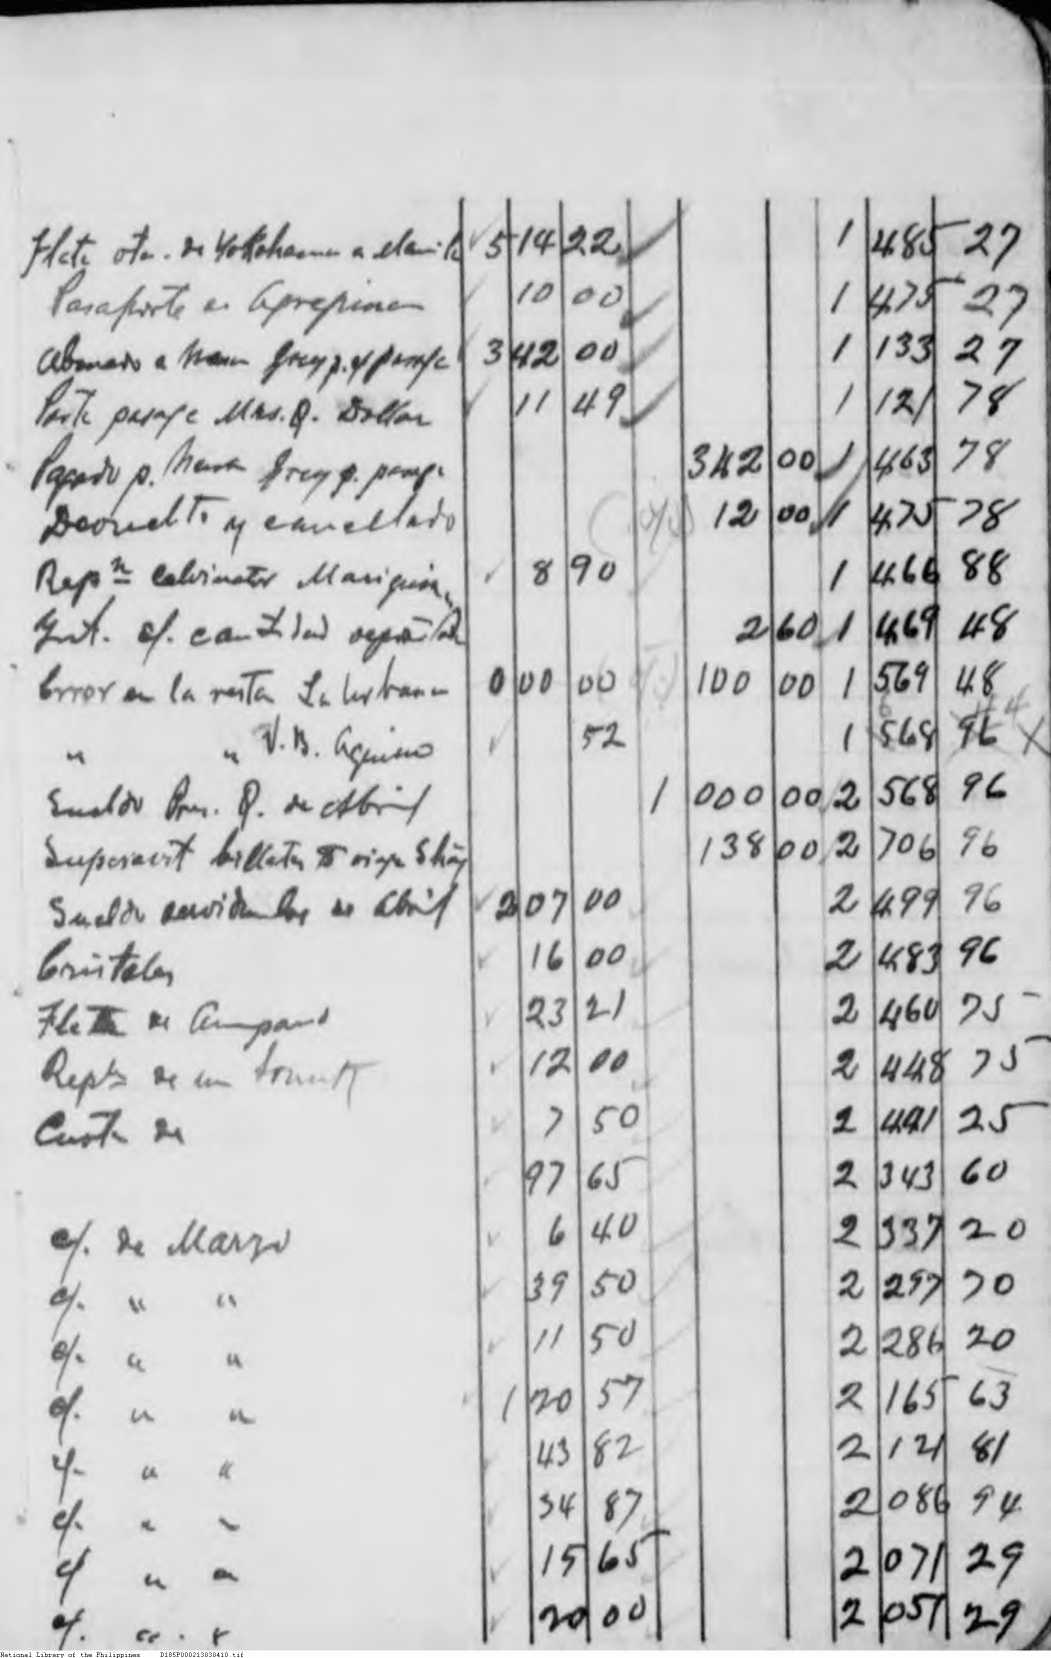 Flete ota. de Yokohama a Manila 514 22 1 485 27
Pasaporte de Agregman 10 00 1 475 27
Abonado a Grey p. pasaje 342 00 1 133 27
Parte pasaje Mrs. Q. Dollar 11 49 1 121 78
Pagado p. Grey p. pasaje 342 00 1 463 78
Devuelto y cancellado 12 00 1 475 78
Repn Calvinator Mariquina 8 90 1 466 88
Int. s/. cantidad 2 60 1 469 48
Error en la resta La Urbana 0 00 00 100 00 1 569 48
" " V. B. Aquino 52 1 568 96 X
Sueldo Pres. Q. de Abril 1 000 00 2 568 96
Superavit billetes viaje 138 00 2 706 96
Sueldo servidumbre de Abril 207 00 2 499 96
Cristales 16 00 2 483 96
Flete de 23 21 2 460 75
Repn de un 12 00 2 448 75
Cuota de 7 50 2 441 25
97 65 2 343 60
c/. de Marzo 6 40 2 337 20
c/. " " 39 50 2 297 70
c/. " " 11 50 2 286 20
c/. " " 120 57 2 165 63
c/. " " 43 82 2 121 81
c/. " " 34 87 2 086 94
c/ " " 15 65 2 071 29
c/. " " 20 00 2 051 29
National Library of the Philippines D185P000213838410.tif